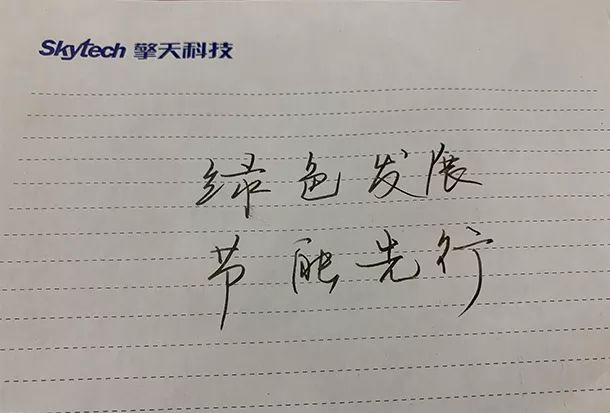 Skytech 擎天科技
绿色发展
节能先行